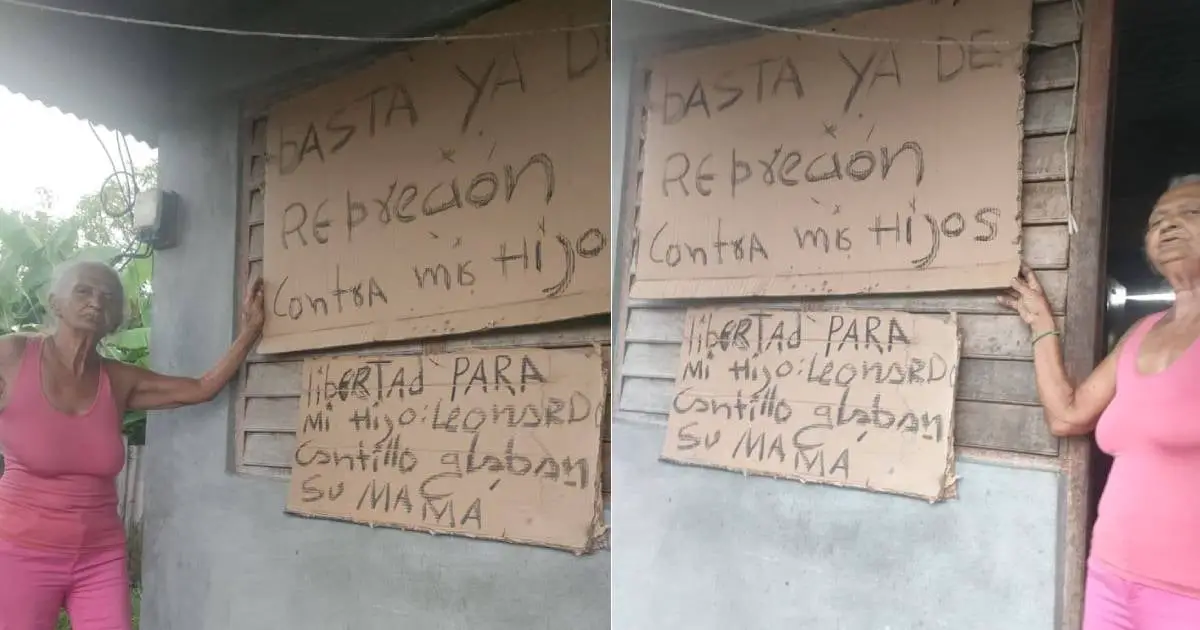 bASTA YA DE
REpreción
Contra mis Hijos
libERTAd PARA
Mi Hijo: LEONARDO
Cantillo galaban
SU MAMÁ
bASTA YA DE
REpreción
Contra mis Hijos
libERTAd PARA
Mi Hijo: LEONARDO
Cantillo galaban
SU MAMÁ